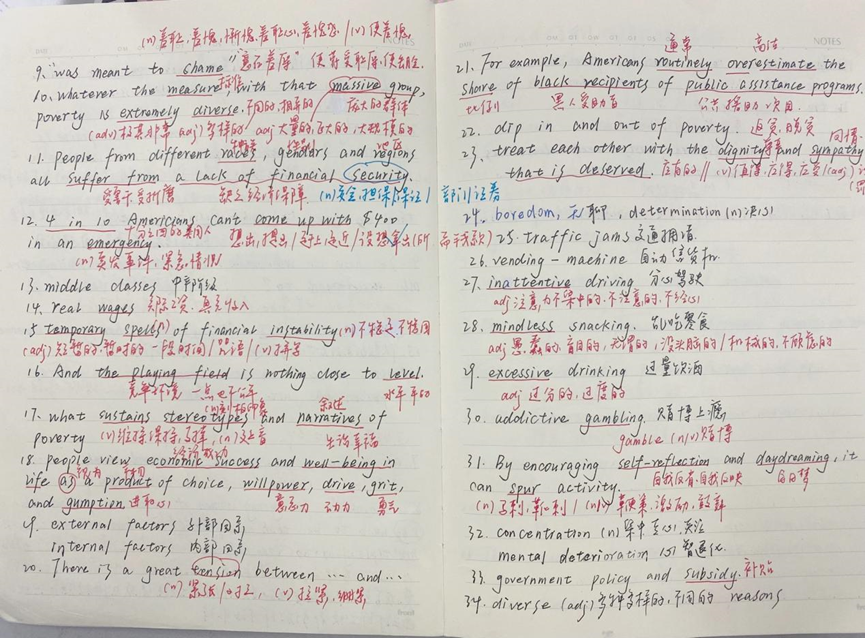 (n) 羞耻, 羞愧, 惭愧, 羞耻心, 羞愧感 / (v) 使羞愧,
NOTES
9. "was meant to shame" "意在羞辱" 使蒙受耻辱, 使出脸.
10. whatever the measure, with that massive group,
标准 庞大的群体
poverty is extremely diverse. 不同的, 相异的
(adv) 极其, 非常 adj) 多样的 adj 大量的, 巨大的, 大规模的
11. People from different races, genders and regions
种族 性别 地区
all suffer from a lack of financial security.
受苦于, 受折磨 缺乏经济保障 (n) 安全, 担保, 保证 / 部门, 证券
12. 4 in 10 Americans can't come up with $400
十分之四的美国人
in an emergency. 想出, 提出 / 赶上, 追近 / 设想拿出 (所需钱款)
(n) 突发事件, 紧急情况
13. middle classes 中产阶级
14. real wages 实际工资, 真实收入
15 temporary spells of financial instability (n) 不稳定, 不稳固
(adj) 短暂的, 暂时的 一段时间 / 咒语 / (v) 拼写
16. And the playing field is nothing close to level.
竞争环境 一点也不公平 水平 平的
17. what sustains stereotypes and narratives of
(n) 刻板印象 叙述
poverty (v) 维持, 保持, 支撑, (n) 支音 生活幸福
经济成功
18. people view economic success and well-being in
life as a product of choice, willpower, drive, grit,
视为
and gumption 进取心 意志力 动力 勇气
19. external factors 外部因素
internal factors 内部因素
20. There is a great tension between … and …
(n) 紧张 / 对立, (v) 拉紧, 绷紧
NOTES
通常 高估
21. For example, Americans routinely overestimate the
share of black recipients of public assistance programs.
比例 黑人受助者 公共援助项目.
22. dip in and out of poverty. 返贫, 脱贫
同情
23. treat each other with the dignity and sympathy
尊重
that is deserved. 应有的 // (v) 值得, 应得, 应受
24. boredom, 无聊, determination (n) 决心
25. traffic jams 交通拥堵.
26. vending-machine 自动售货机.
27. inattentive driving 分心驾驶
adj 注意力不集中的, 不注意的, 不经心
28. mindless snacking. 乱吃零食
adj 愚蠢的, 盲目的, 无谓的, 没头脑的 / 机械的, 不顾虑的
29. excessive drinking 过量饮酒
adj 过分的, 过度的
30. addictive gambling. 赌博上瘾
gamble (n)(v) 赌博
31. By encouraging self-reflection and daydreaming, it
自我反省, 自我反映 白日梦
can spur activity.
(n) 马刺, 靴刺 / (n)(v) 鞭策, 激励, 鼓舞
32. concentration (n) 集中, 专心, 关注
mental deterioration 心智退化.
33. government policy and subsidy. 补贴
34. diverse (adj) 多种多样的, 不同的 reasons